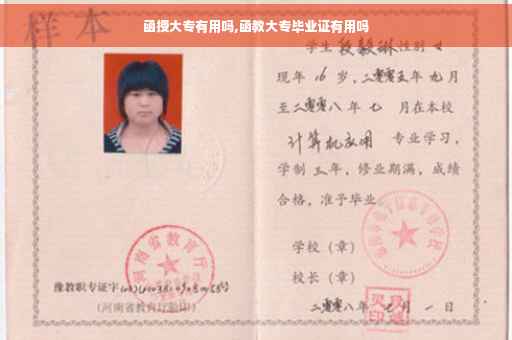 函授大专有用吗,函教大专毕业证有用吗
样本
学生 段毅琳 性别 女
现年 16 岁，二零零五年九月
至二零零八年七 月在本校
计算机应用 专业学习，
学制 三年，修业期满，成绩
合格，准予毕业
学校（章）
校长（章）
二零零八年七月一日
河南省教育厅
豫教职专证字
(河南省教育厅验印)